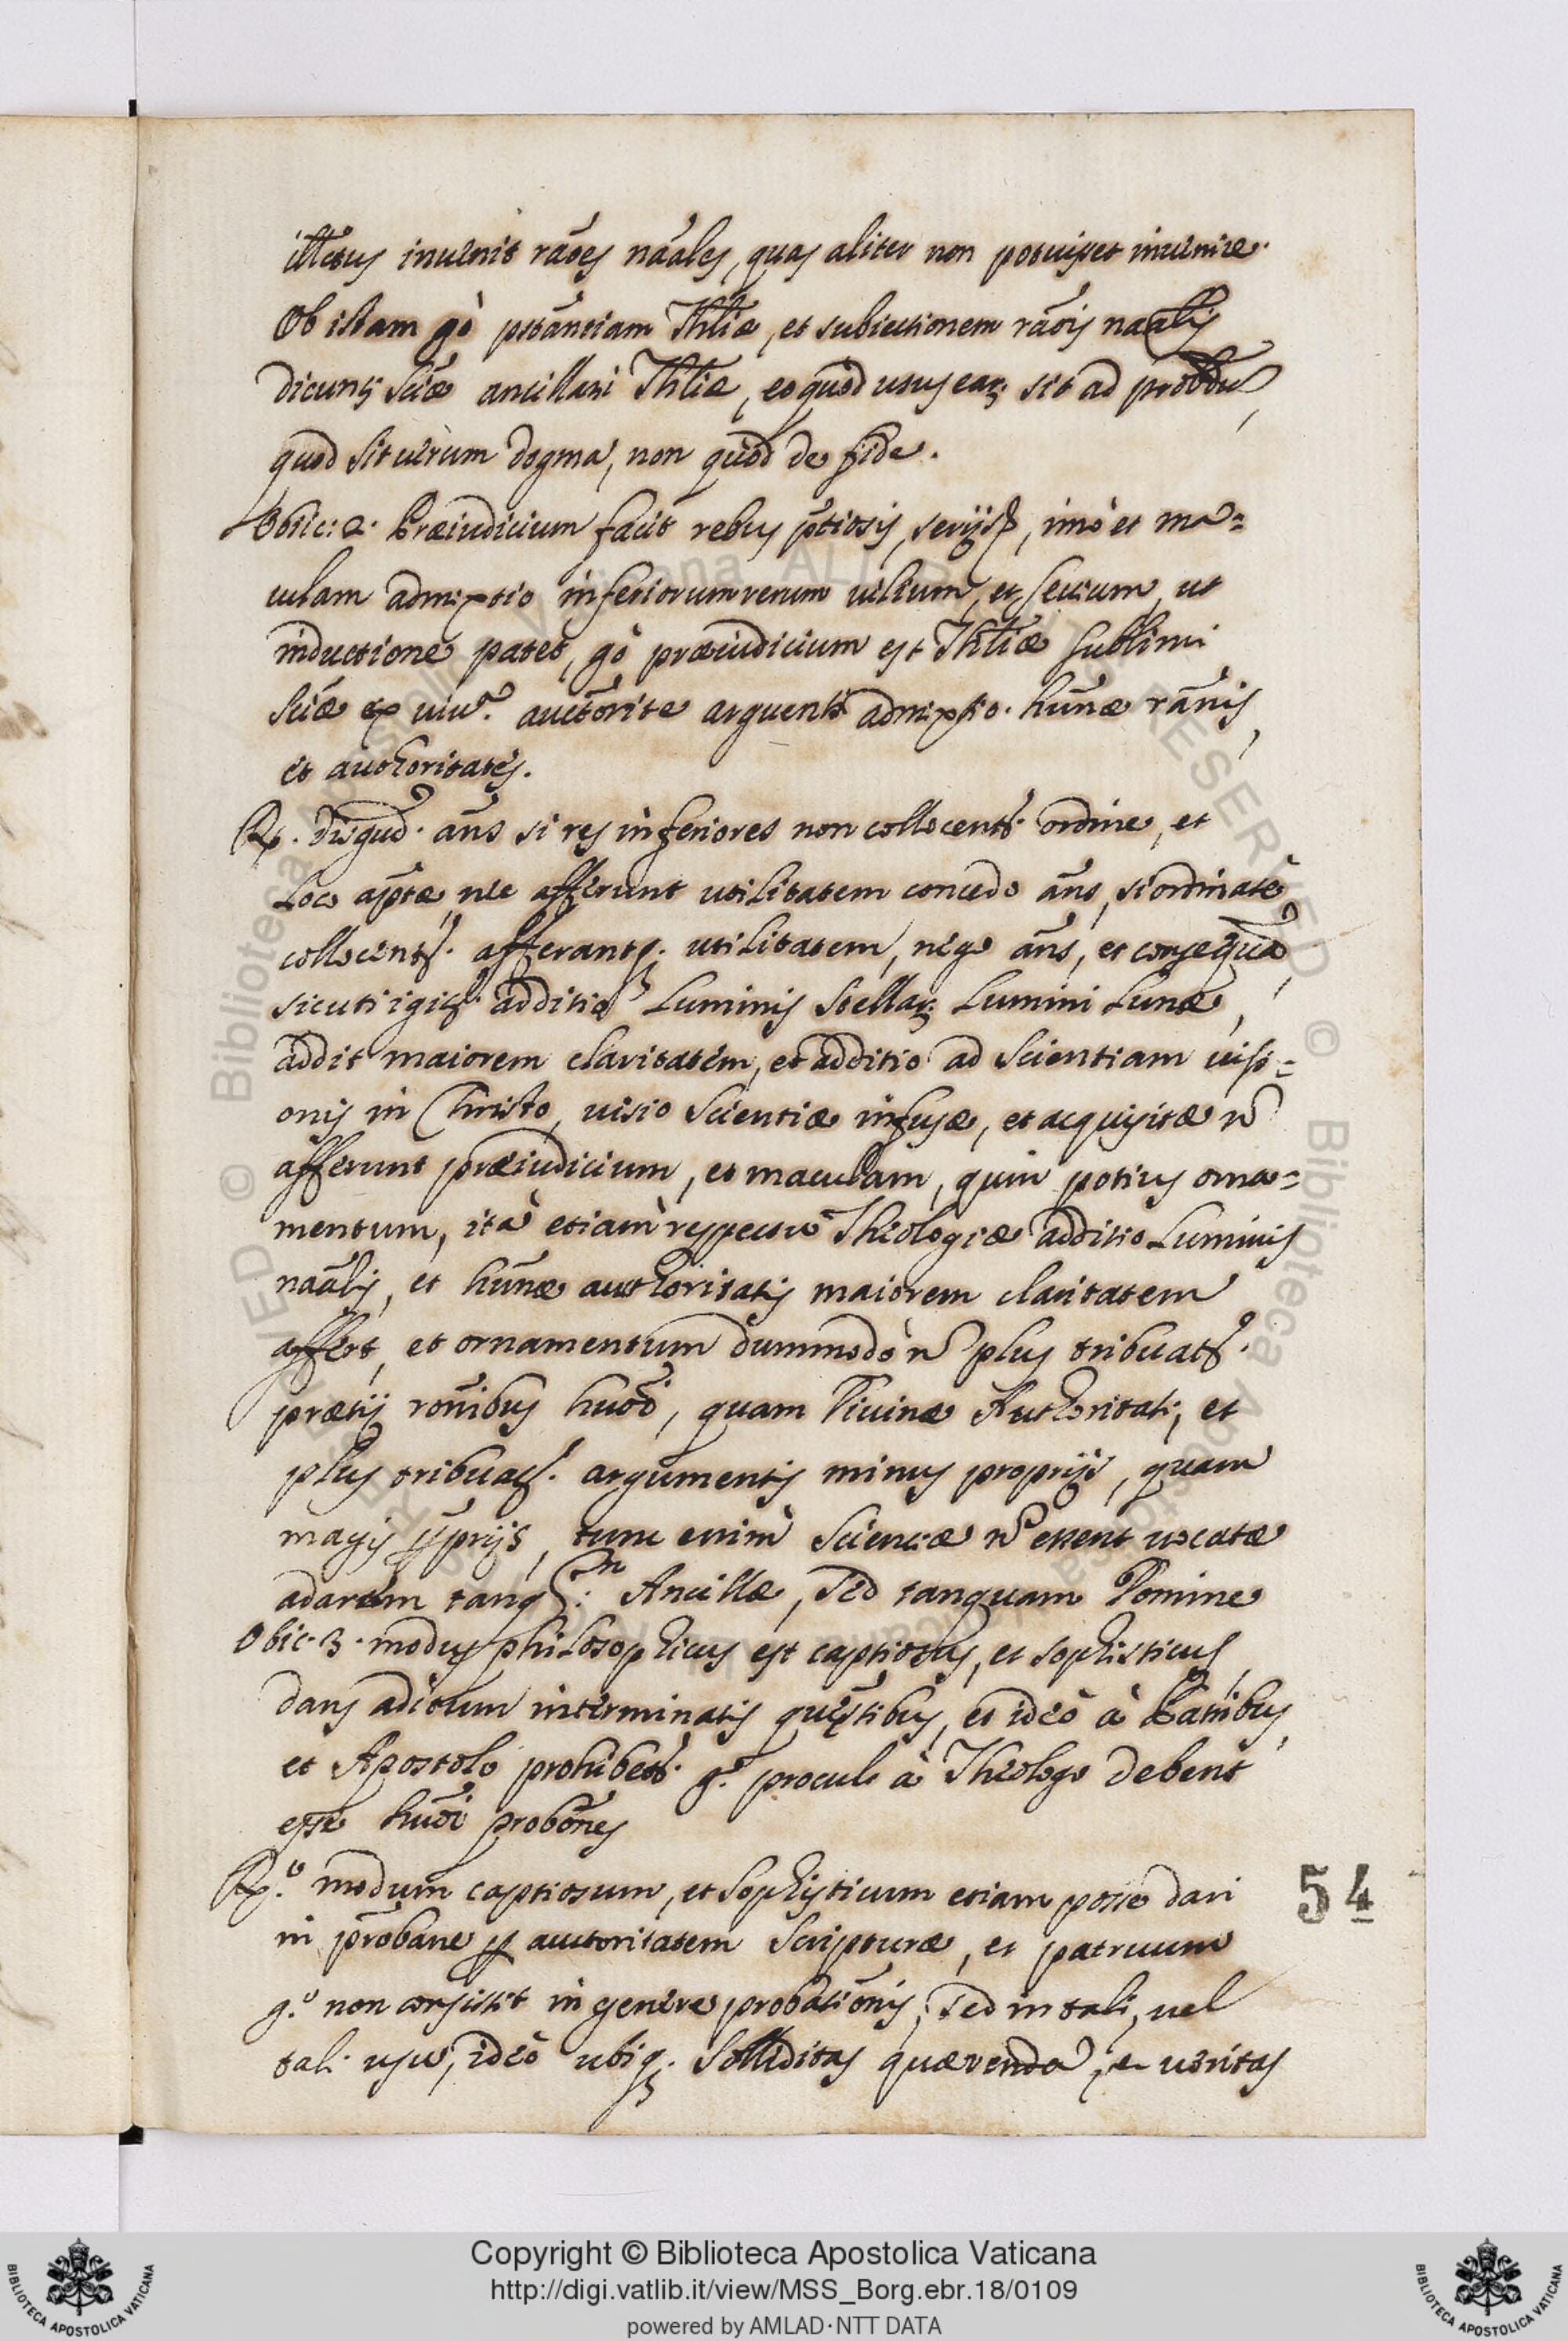 illẽtus inuenit rãões nãales, quas aliter non potuisset inuenire.
Ob istam gò pstãntiam Thliæ, et subiectionem rãois naalis
dicuntr Sciæ ancillari Thliæ, eo quòd usus ear; sit ad probdu,
quod sit uerum dogma, non quòd de fide.
Obiic: 2. Præiudicium facit rebus ptiosis, serijsq, imò et ma=
culam admixtio inferiorum rerum uilium, et secium, ut
inductione patet, gò præiudicium est Thliæ sublimi
Sciæ ex auctorite arguenti admixtio. humæ rãnis,
et authoritatis.
Rp. disgud. ans si res inferiores non collocentr. ordine, et
Loco aptæ, nec afferunt utilitatem concedo ans, si ordinatè
collocentr. afferantq. utilitatem, nego ans, et consequã,
sicuti igitr. additio Luminis Stellar; Lumini Lunæ,
addit maiorem claritatem, et additio ad Scientiam uisi=
onis in Christo, uisio Scientiæ infusæ, et acquisitæ ñ
afferunt præiudicium, et maculam, quin potius orna=
mentum, ità etiam respectu Theologiæ additio Luminis
naãlis, et humæ authoritatis maiorem claritatem
affert, et ornamentum dummodò ñ plus tribuatr.
prætij ronibus huõi, quam Diuinæ Authoritati, et
plus tribuatr. argumentis minus proprijs, quam
magis pprijs, tunc enim Scienciæ ñ essent uocatæ
ad arcem tanq. Ancillæ, Sed tanquam Domine
Obic. 3. modus philosophicus est captiosus, et sophisticus,
dans aditum interminatis questibus, et ideò à Patribus,
et Apostolo prohibetr. g.º procul à Theologo debent
esse huõi probones
Rp.º modum captiosum, et Sophisticum etiam posse dari
in probane p auctoritatem Scripturæ, et patruum
g.º non consistit in genere probationis, Sed in tali, uel
tali usu, ideò ubiq. Solliditas quærenda, et ueritas
54
Copyright © Biblioteca Apostolica Vaticana
http://digi.vatlib.it/view/MSS_Borg.ebr.18/0109
powered by AMLAD·NTT DATA